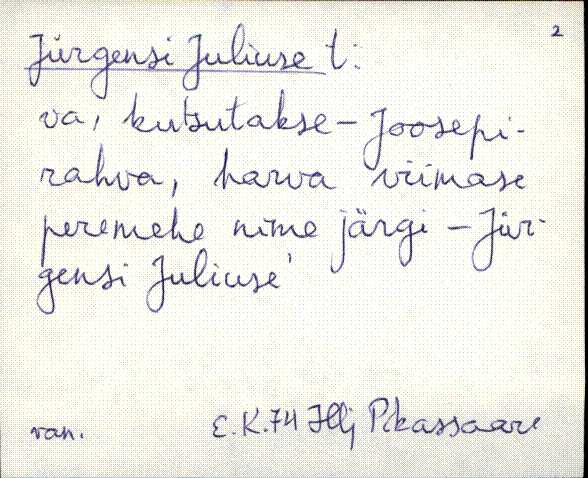 2
Jürgensi Juliuse t:
va, kutsutakse – Joosepi-
rahva, harva viimase
peremehe nime järgi – Jür-
gensi Juliuse'
van. E.K.74 Hlj Pikassaare